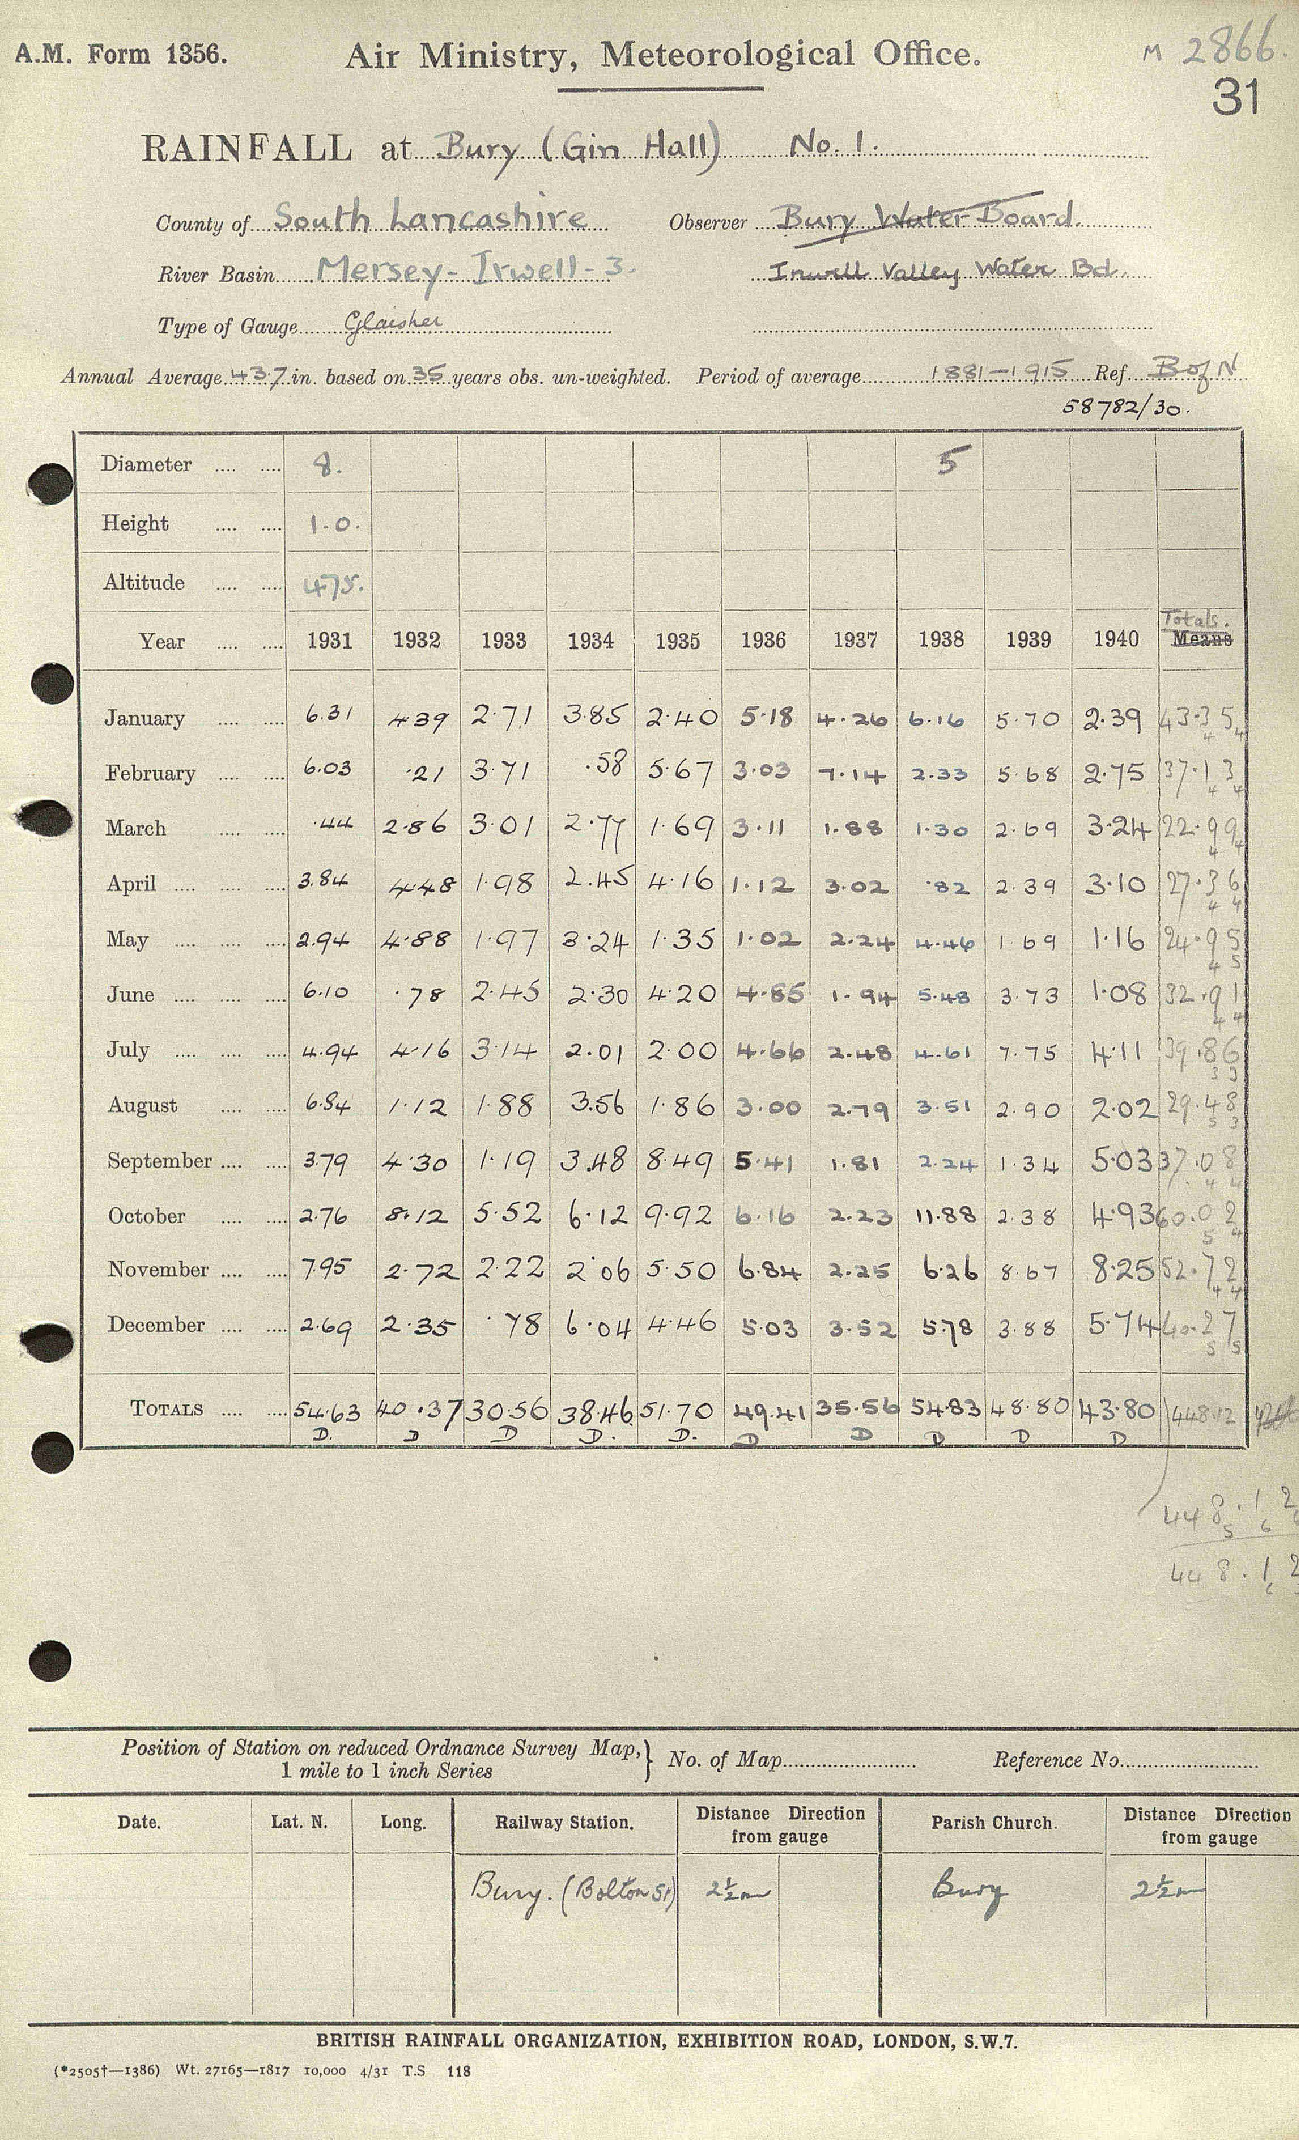 A.M. Form 1356. Air Ministry, Meteorological Office. M 2866.
31
RAINFALL at Bury (Gin Hall) No. 1.
County of South Lancashire Observer Bury Water Board.
River Basin Mersey-Irwell-3. Irwell Valley Water Bd.
Type of Gauge Glaisher
Annual Average 43.7 in. based on 35 years obs. un-weighted. Period of average 1881-1915 Ref. B of N
58782/30.
Diameter .... .... 8. 5
Height .... .... 1.0.
Altitude .... .... 475.
Totals.
Year .... .... 1931 1932 1933 1934 1935 1936 1937 1938 1939 1940 Means
January .... .... 6.31 4.39 2.71 3.85 2.40 5.18 4.26 6.16 5.70 2.39 43.35
February .... .... 6.03 .21 3.71 .58 5.67 3.03 7.14 2.33 5.68 2.75 37.13
March .... .... .44 2.86 3.01 2.77 1.69 3.11 1.88 1.30 2.69 3.24 22.99
April .... .... .... 3.84 4.48 1.98 2.45 4.16 1.12 3.02 .82 2.39 3.10 27.36
May .... .... .... 2.94 4.88 1.97 3.24 1.35 1.02 2.24 4.46 1.69 1.16 24.95
June .... .... .... 6.10 .78 2.45 2.30 4.20 4.85 1.94 5.48 3.73 1.08 32.91
July .... .... .... 4.94 4.16 3.14 2.01 2.00 4.66 2.48 4.61 7.75 4.11 39.86
August .... .... 6.84 1.12 1.88 3.56 1.86 3.00 2.79 3.51 2.90 2.02 29.48
September .... .... 3.79 4.30 1.19 3.48 8.49 5.41 1.81 2.24 1.34 5.03 37.08
October .... .... 2.76 8.12 5.52 6.12 9.92 6.16 2.23 11.88 2.38 4.93 60.02
November .... .... 7.95 2.72 2.22 2.06 5.50 6.84 2.25 6.26 8.67 8.25 52.72
December .... .... 2.69 2.35 .78 6.04 4.46 5.03 3.52 5.78 3.88 5.74 40.27
TOTALS .... .... 54.63 40.37 30.56 38.46 51.70 49.41 35.56 54.83 48.80 43.80 448.12
D. D D D. D. D D D D D
448.12
448.12
Position of Station on reduced Ordnance Survey Map,} No. of Map Reference No.
1 mile to 1 inch Series
Date. Lat. N. Long. Railway Station. Distance Direction from gauge Parish Church. Distance Direction from gauge
Bury. (Bolton St) 2½m Bury 2½m
BRITISH RAINFALL ORGANIZATION, EXHIBITION ROAD, LONDON, S.W.7.
(*2505†—1386) Wt. 27165—1817 10,000 4/31 T.S 118